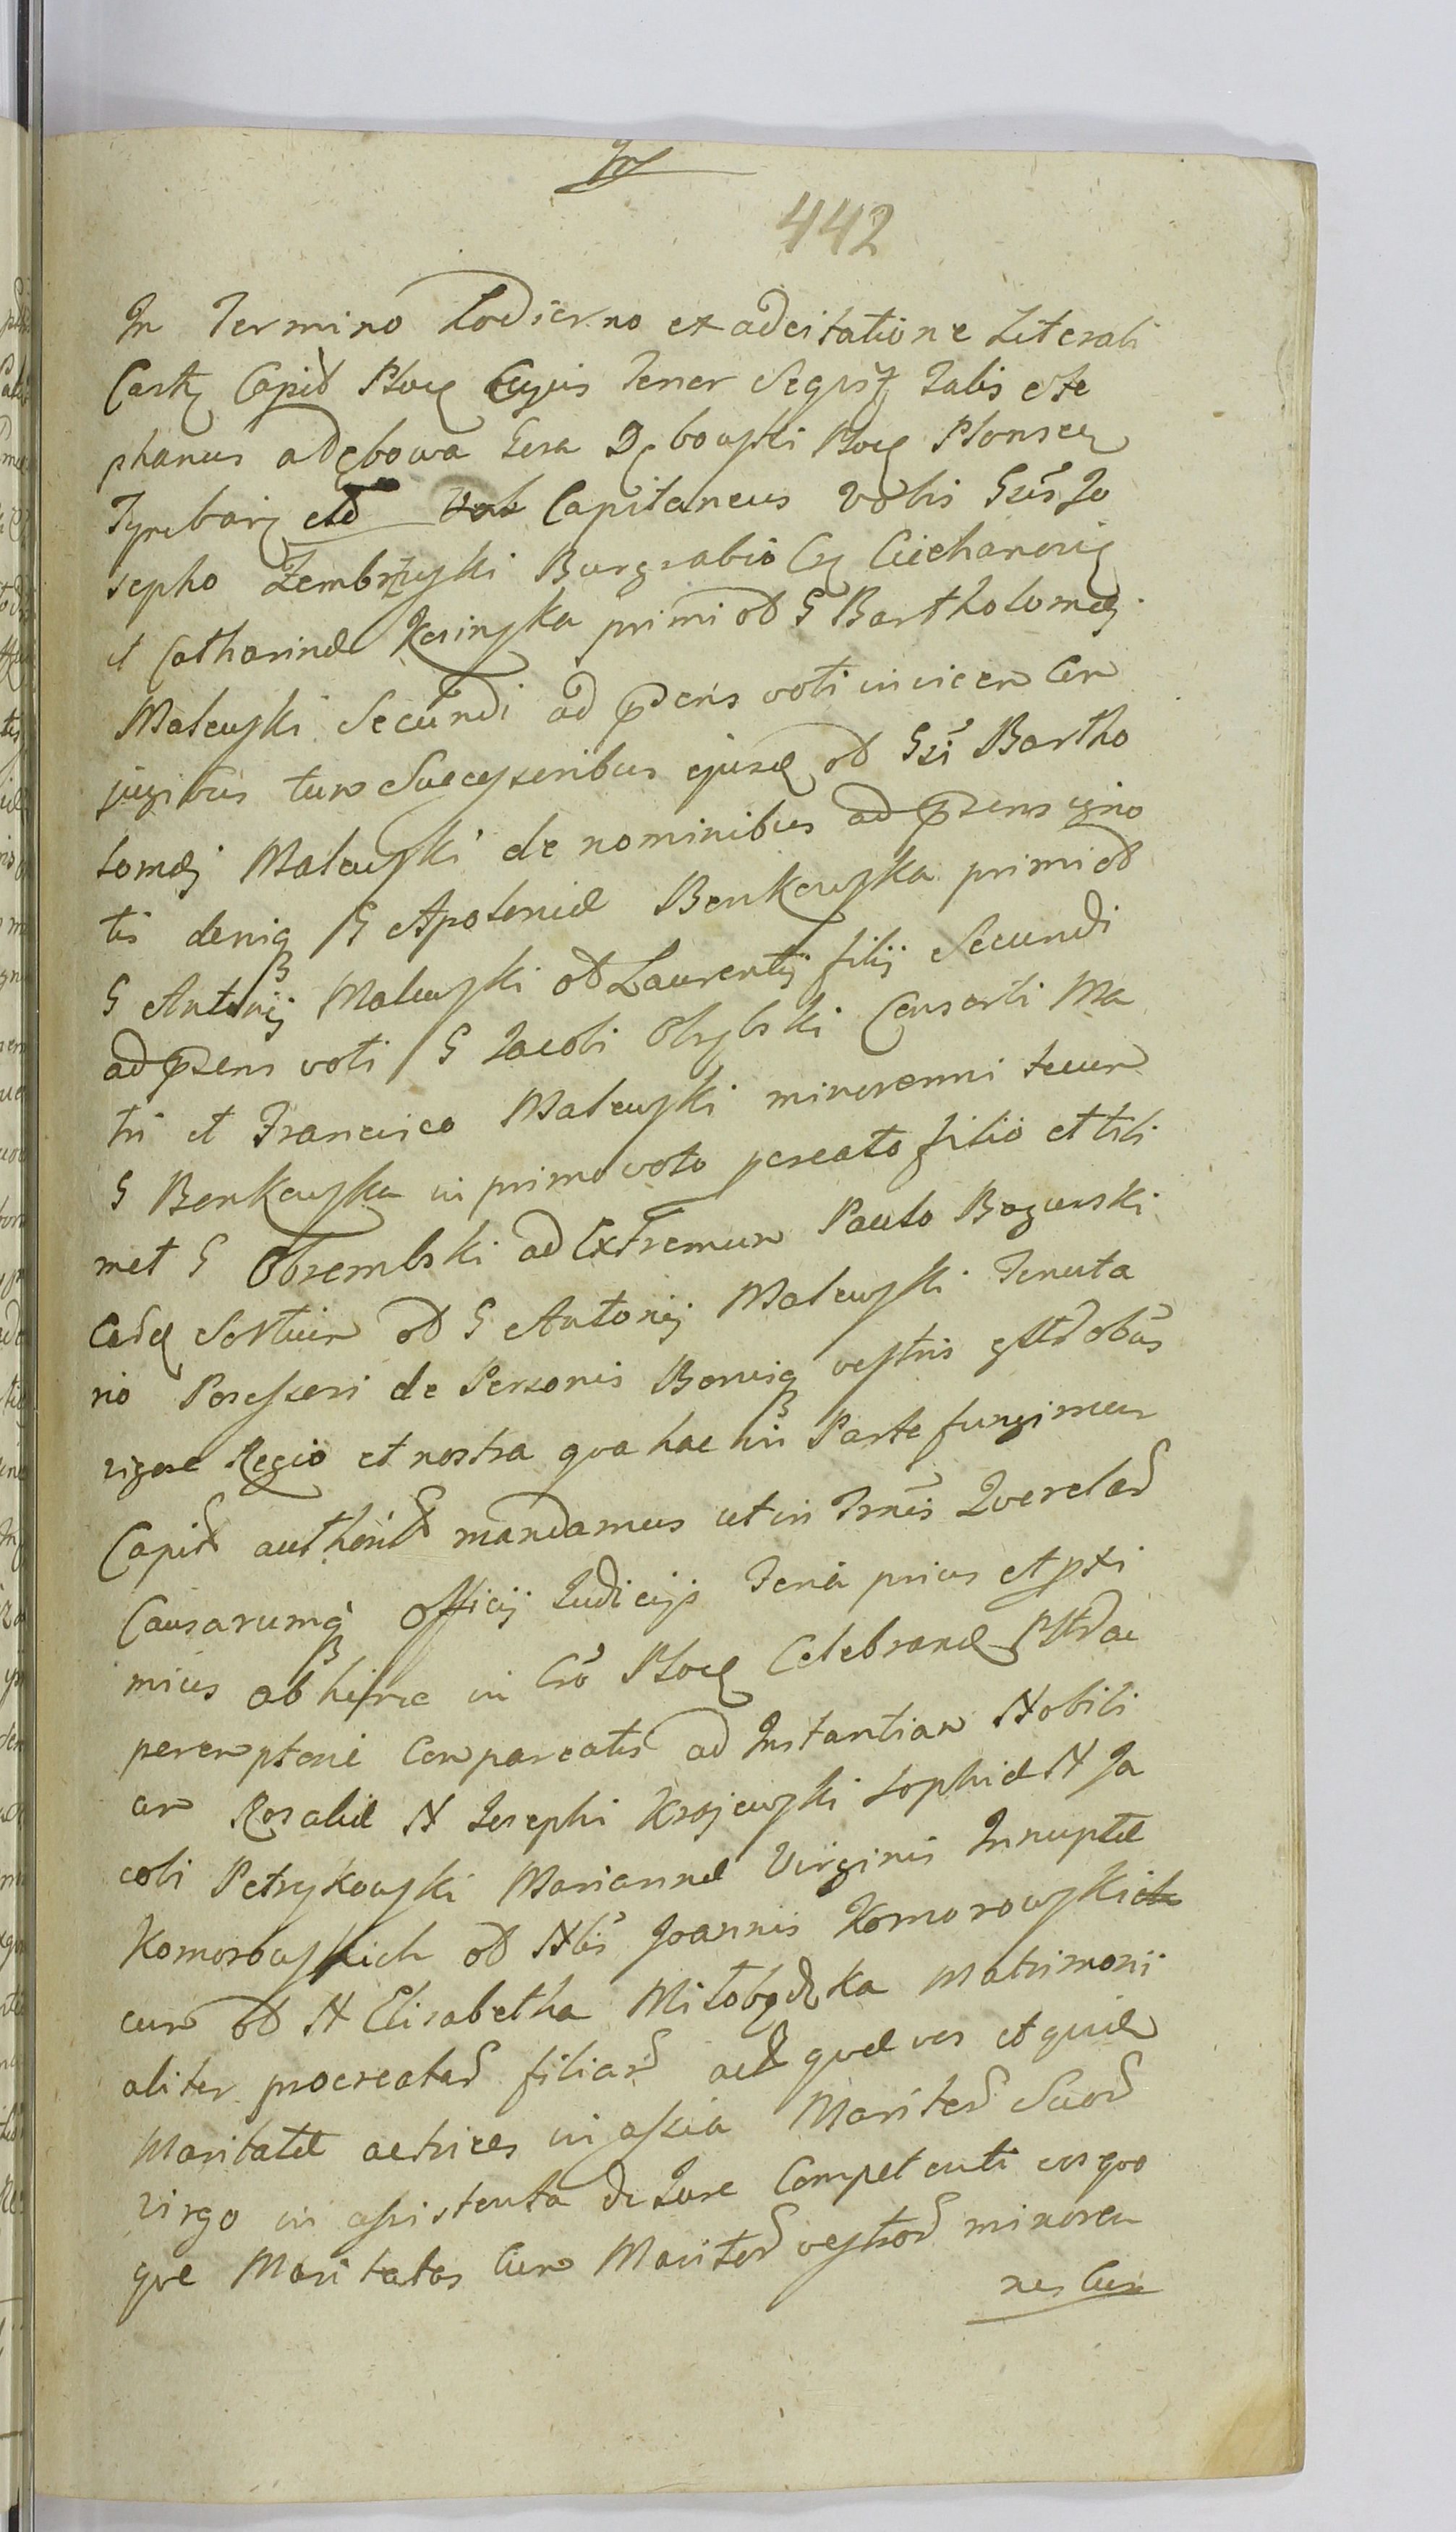 442
In Termino hodierno ex adcitatione Literali
Castr Capit Ploc Cujus Tenor Sequr Talis Ste
phanus a Dębowa Gora Dębowski Ploc Plonscen
Capitaneus Vobis Gsis Jo
sepho Zembrzuski Burgrabio Ciechanovi
et Catharinæ Kesinska primi od G Bartholomæj
Malewski Secundi ad præsens voti invicem Con
jugibus tum Successoribus ejusd od Gsi Bartho
lomæj Malewski de nominibus ad præsens igno
tis deniq G Apoloniæ Benkowska primi od
G Antonij Malewski od Laurentij filij Secundi
ad præsens voti G Jacobi Obrębski Consorti Ma
tri et Francisco Malewski minorenni tecum
G Benkowska in primo voto pcreato filio et tibi
met G Obrembski ad Extremum Paulo Bogurski
Sortium od G Antonij Malewski Tenuta
rio Possessori de Personis Bonisq vestris
vigore Regio et nostra qua hac in Parte fungimur
Capit authorit mandamus ut in Trnis Querelar
Causarumq Officij Judicijs Feria prius et pxi
mius ab hinc in Cro Ploc Celebrand
peremptorie Compareatis ad Instantiam Nobili
um Rosaliæ N Josephi Krajewski Sophiæ N Ja
cobi Petrykowski Mariannæ Virginis Innuptæ
Komorowskich od Nlis Joannis Komorowski
cum od N Elisabetha Miłobędzka Matrimoni
aliter procreatar filiar act quæ vos et quid
Maritatæ actrices in assia Maritor Suor
virgo in assistentia de Jure Competenti vos quo
que Maritatas Cum Maritor vestror minoren
nes Cum